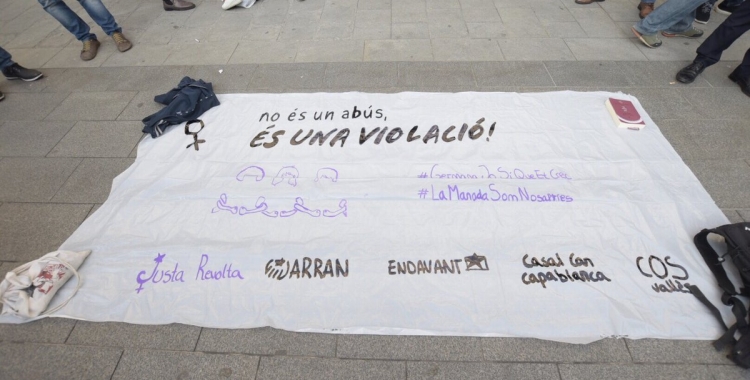 no és un abús,
ÉS UNA VIOLACIÓ!
#Germana JoSíQueEtCrec
#LaManadaSomNosaltres
Justa Revolta
ARRAN
ENDAVANT
Casal Can
capablanca
COS
vallès